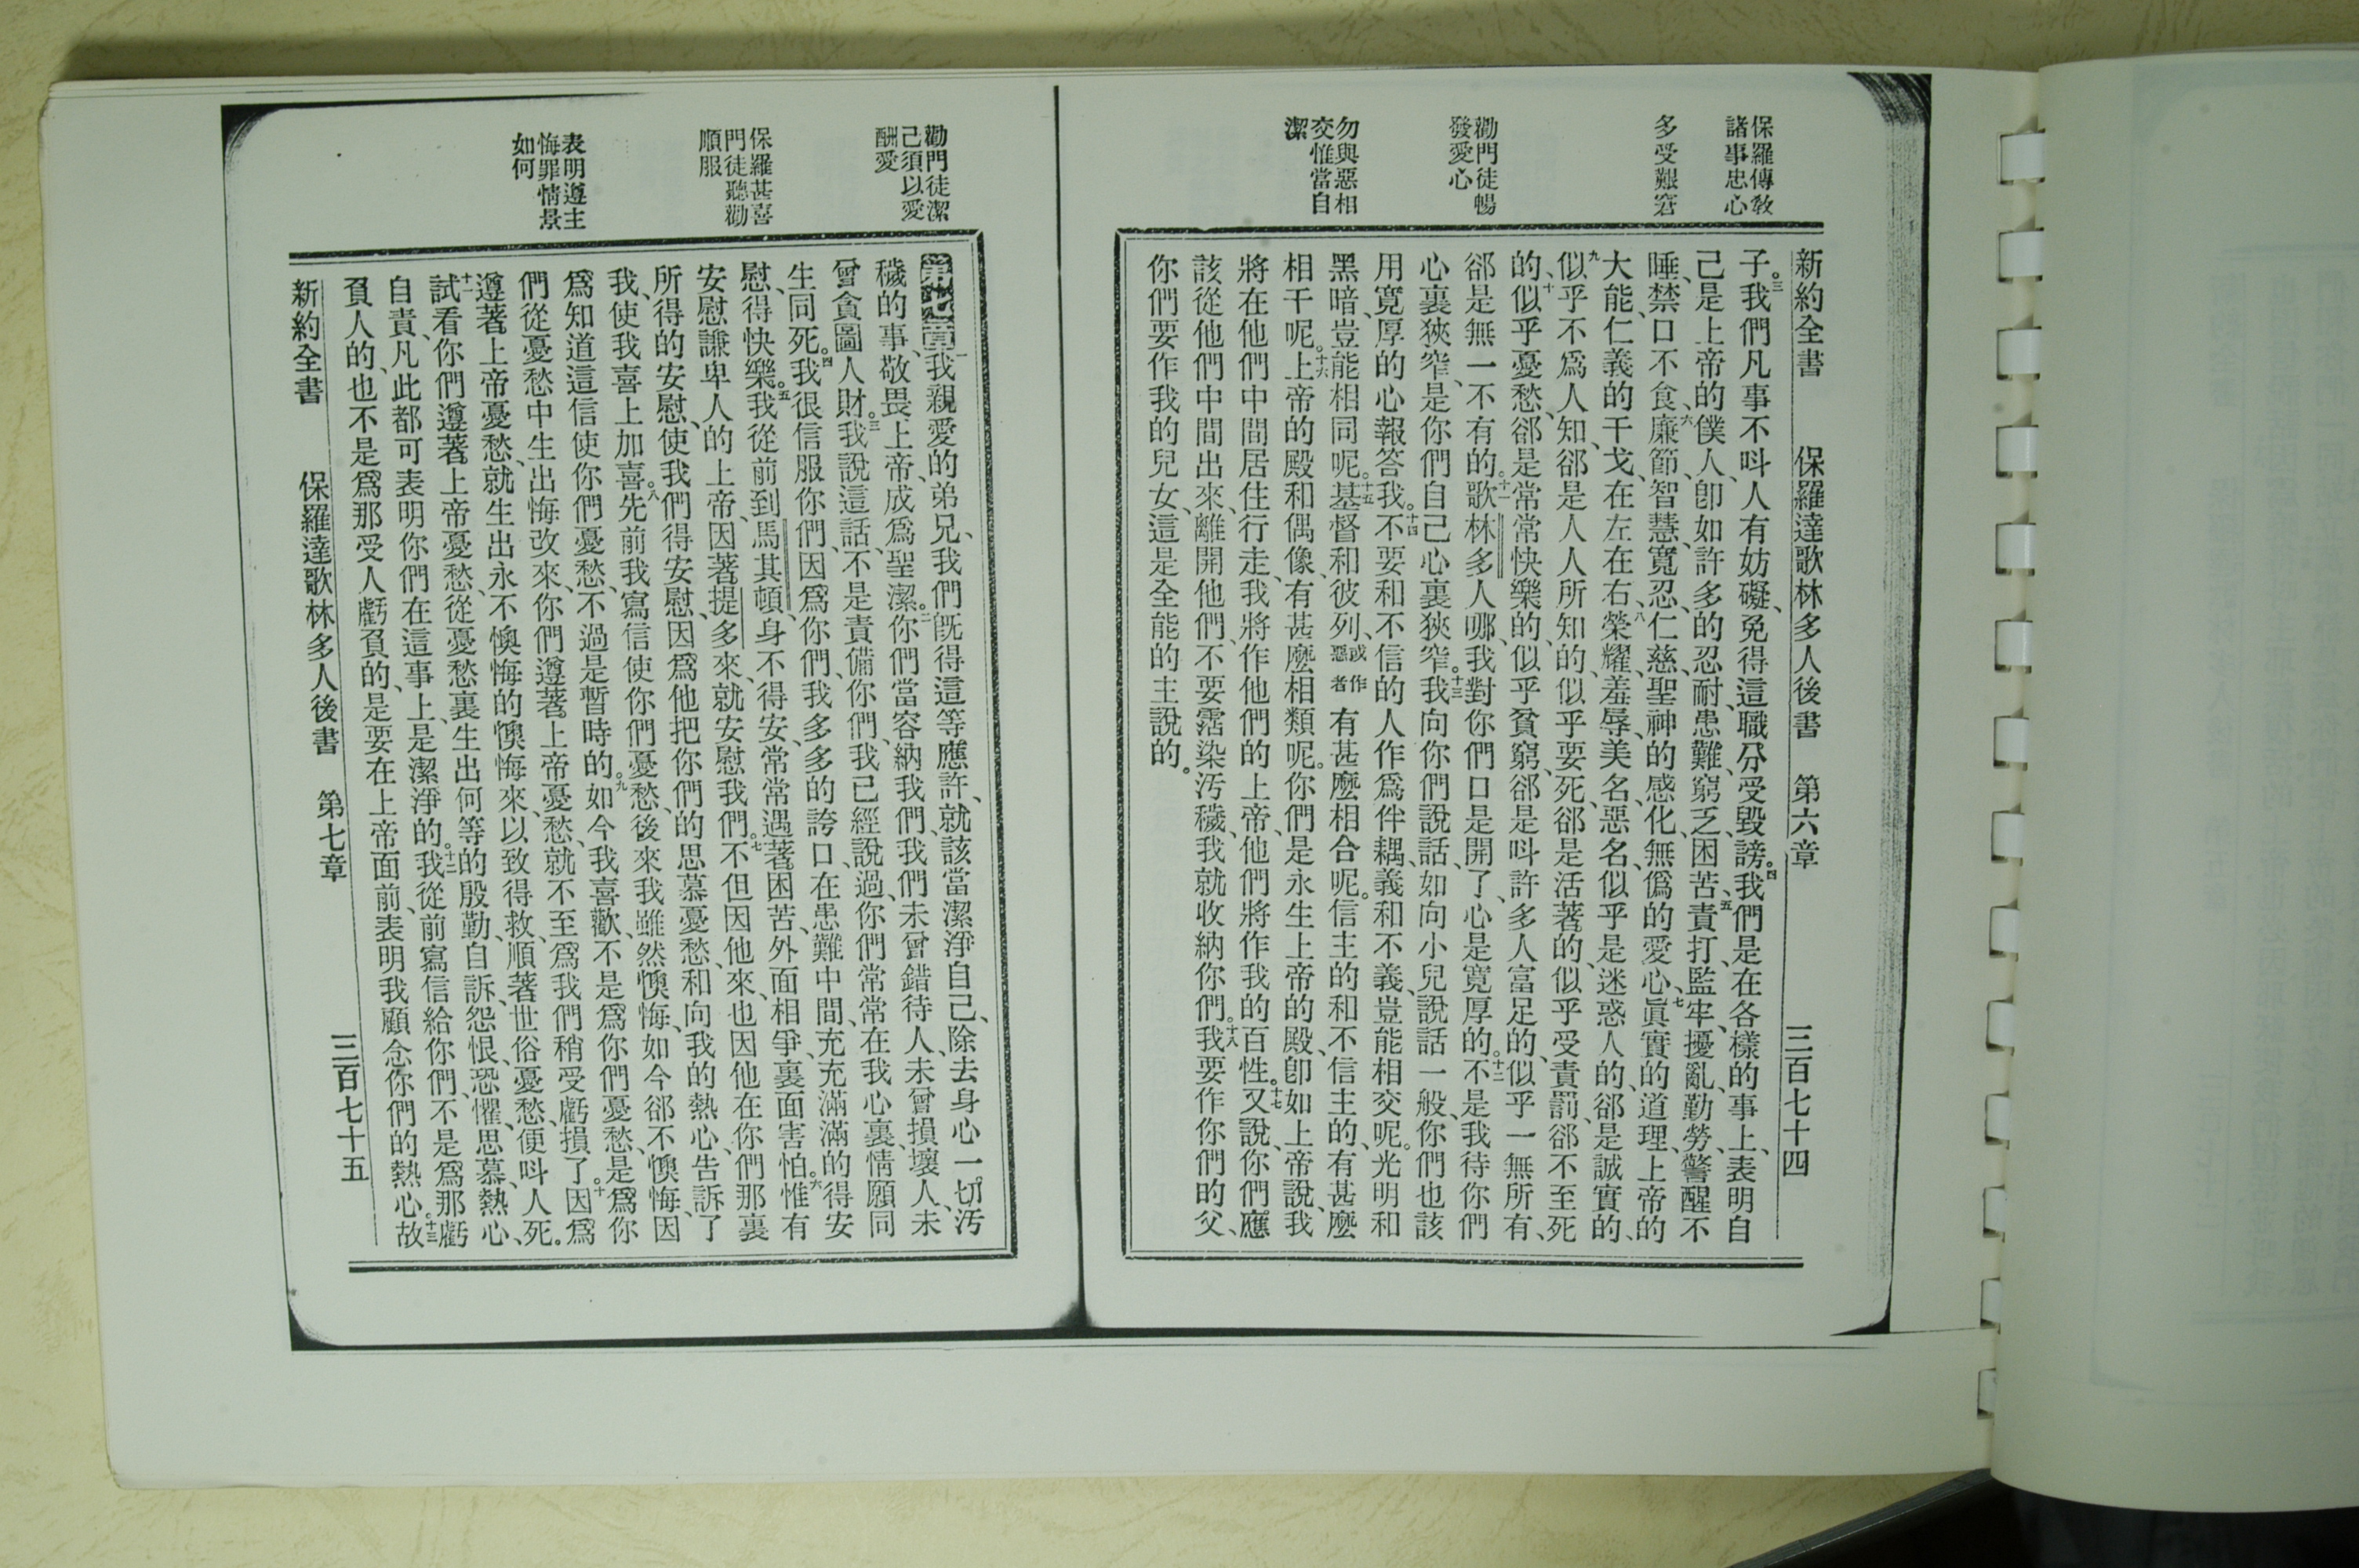 新約全書 保羅達歌林多人後書 第六章 三百七十四
保羅傳教
諸事忠心
多受艱窘
勸門徒暢
發愛心
勿與惡相
交惟當自
潔
子。三我們凡事不呌人有妨礙、免得這職分受毀謗。四我們是在各樣的事上、表明自
己是上帝的僕人、卽如許多的忍耐、患難、窮乏、困苦、五責打、監牢、擾亂、勤勞、警醒不
睡、禁口不食、六廉節、智慧、寬忍、仁慈、聖神的感化、無僞的愛心、七眞實的道理、上帝的
大能、仁義的干戈、在左在右、八榮耀、羞辱、美名、惡名、似乎是迷惑人的、郤是誠實的、
九似乎不爲人知、郤是人人所知的、似乎要死、郤是活著的、似乎受責罰、郤不至死
的、十似乎憂愁、郤是常常快樂的、似乎貧窮、郤是呌許多人富足的、似乎一無所有、
郤是無一不有的。十一歌林多人哪、我對你們口是開了、心是寬厚的。十二不是我待你們
心裏狹窄、是你們自己心裏狹窄。十三我向你們說話、如向小兒說話一般、你們也該
用寬厚的心報答我。十四不要和不信的人作爲伴耦、義和不義、豈能相交呢。光明和
黑暗、豈能相同呢。十五基督和彼列、或作惡者有甚麼相合呢。信主的和不信主的、有甚麼
相干呢。十六上帝的殿和偶像、有甚麼相類呢。你們是永生上帝的殿、卽如上帝說、我
將在他們中間居住行走、我將作他們的上帝、他們將作我的百性。十七又說、你們應
該從他們中間出來、離開他們、不要霑染汚穢、我就收納你們。十八我要作你們的父、
你們要作我的兒女、這是全能的主說的。
勸門徒潔
己須以愛
酬愛
保羅甚喜
門徒聽勸
順服
表明遵主
悔罪情景
如何
第七章一我親愛的弟兄、我們旣得這等應許、就該當潔淨自己、除去身心一切汚
穢的事、敬畏上帝、成爲聖潔。二你們當容納我們、我們未曾錯待人、未曾損壞人、未
曾貪圖人財。三我說這話、不是責備你們、我已經說過、你們常常在我心裏、情願同
生同死。四我很信服你們、因爲你們、我多多的誇口、在患難中間、充充滿滿的得安
慰、得快樂。五我從前到馬其頓、身不得安、常常遇著困苦、外面相爭、裏面害怕。六惟有
安慰謙卑人的上帝、因著提多來、就安慰我們。七不但因他來、也因他在你們那裏
所得的安慰、使我們得安慰、因爲他把你們的思慕憂愁、和向我的熱心、告訴了
我、使我喜上加喜。八先前我寫信使你們憂愁、後來我雖然懊悔、如今郤不懊悔、因
爲知道這信使你們憂愁、不過是暫時的。九如今我喜歡、不是爲你們憂愁、是爲你
們從憂愁中生出悔改來、你們遵著上帝憂愁、就不至爲我們稍受虧損了。十因爲
遵著上帝憂愁、就生出永不懊悔的懊悔來、以致得救、順著世俗憂愁、便呌人死。
十一試看你們遵著上帝憂愁、從憂愁裏生出何等的殷勤、自訴、怨恨、恐懼、思慕、熱心、
自責、凡此都可表明你們在這事上、是潔淨的。十二我從前寫信給你們、不是爲那虧
負人的、也不是爲那受人虧負的、是要在上帝面前、表明我顧念你們的熱心。十三故
新約全書 保羅達歌林多人後書 第七章 三百七十五